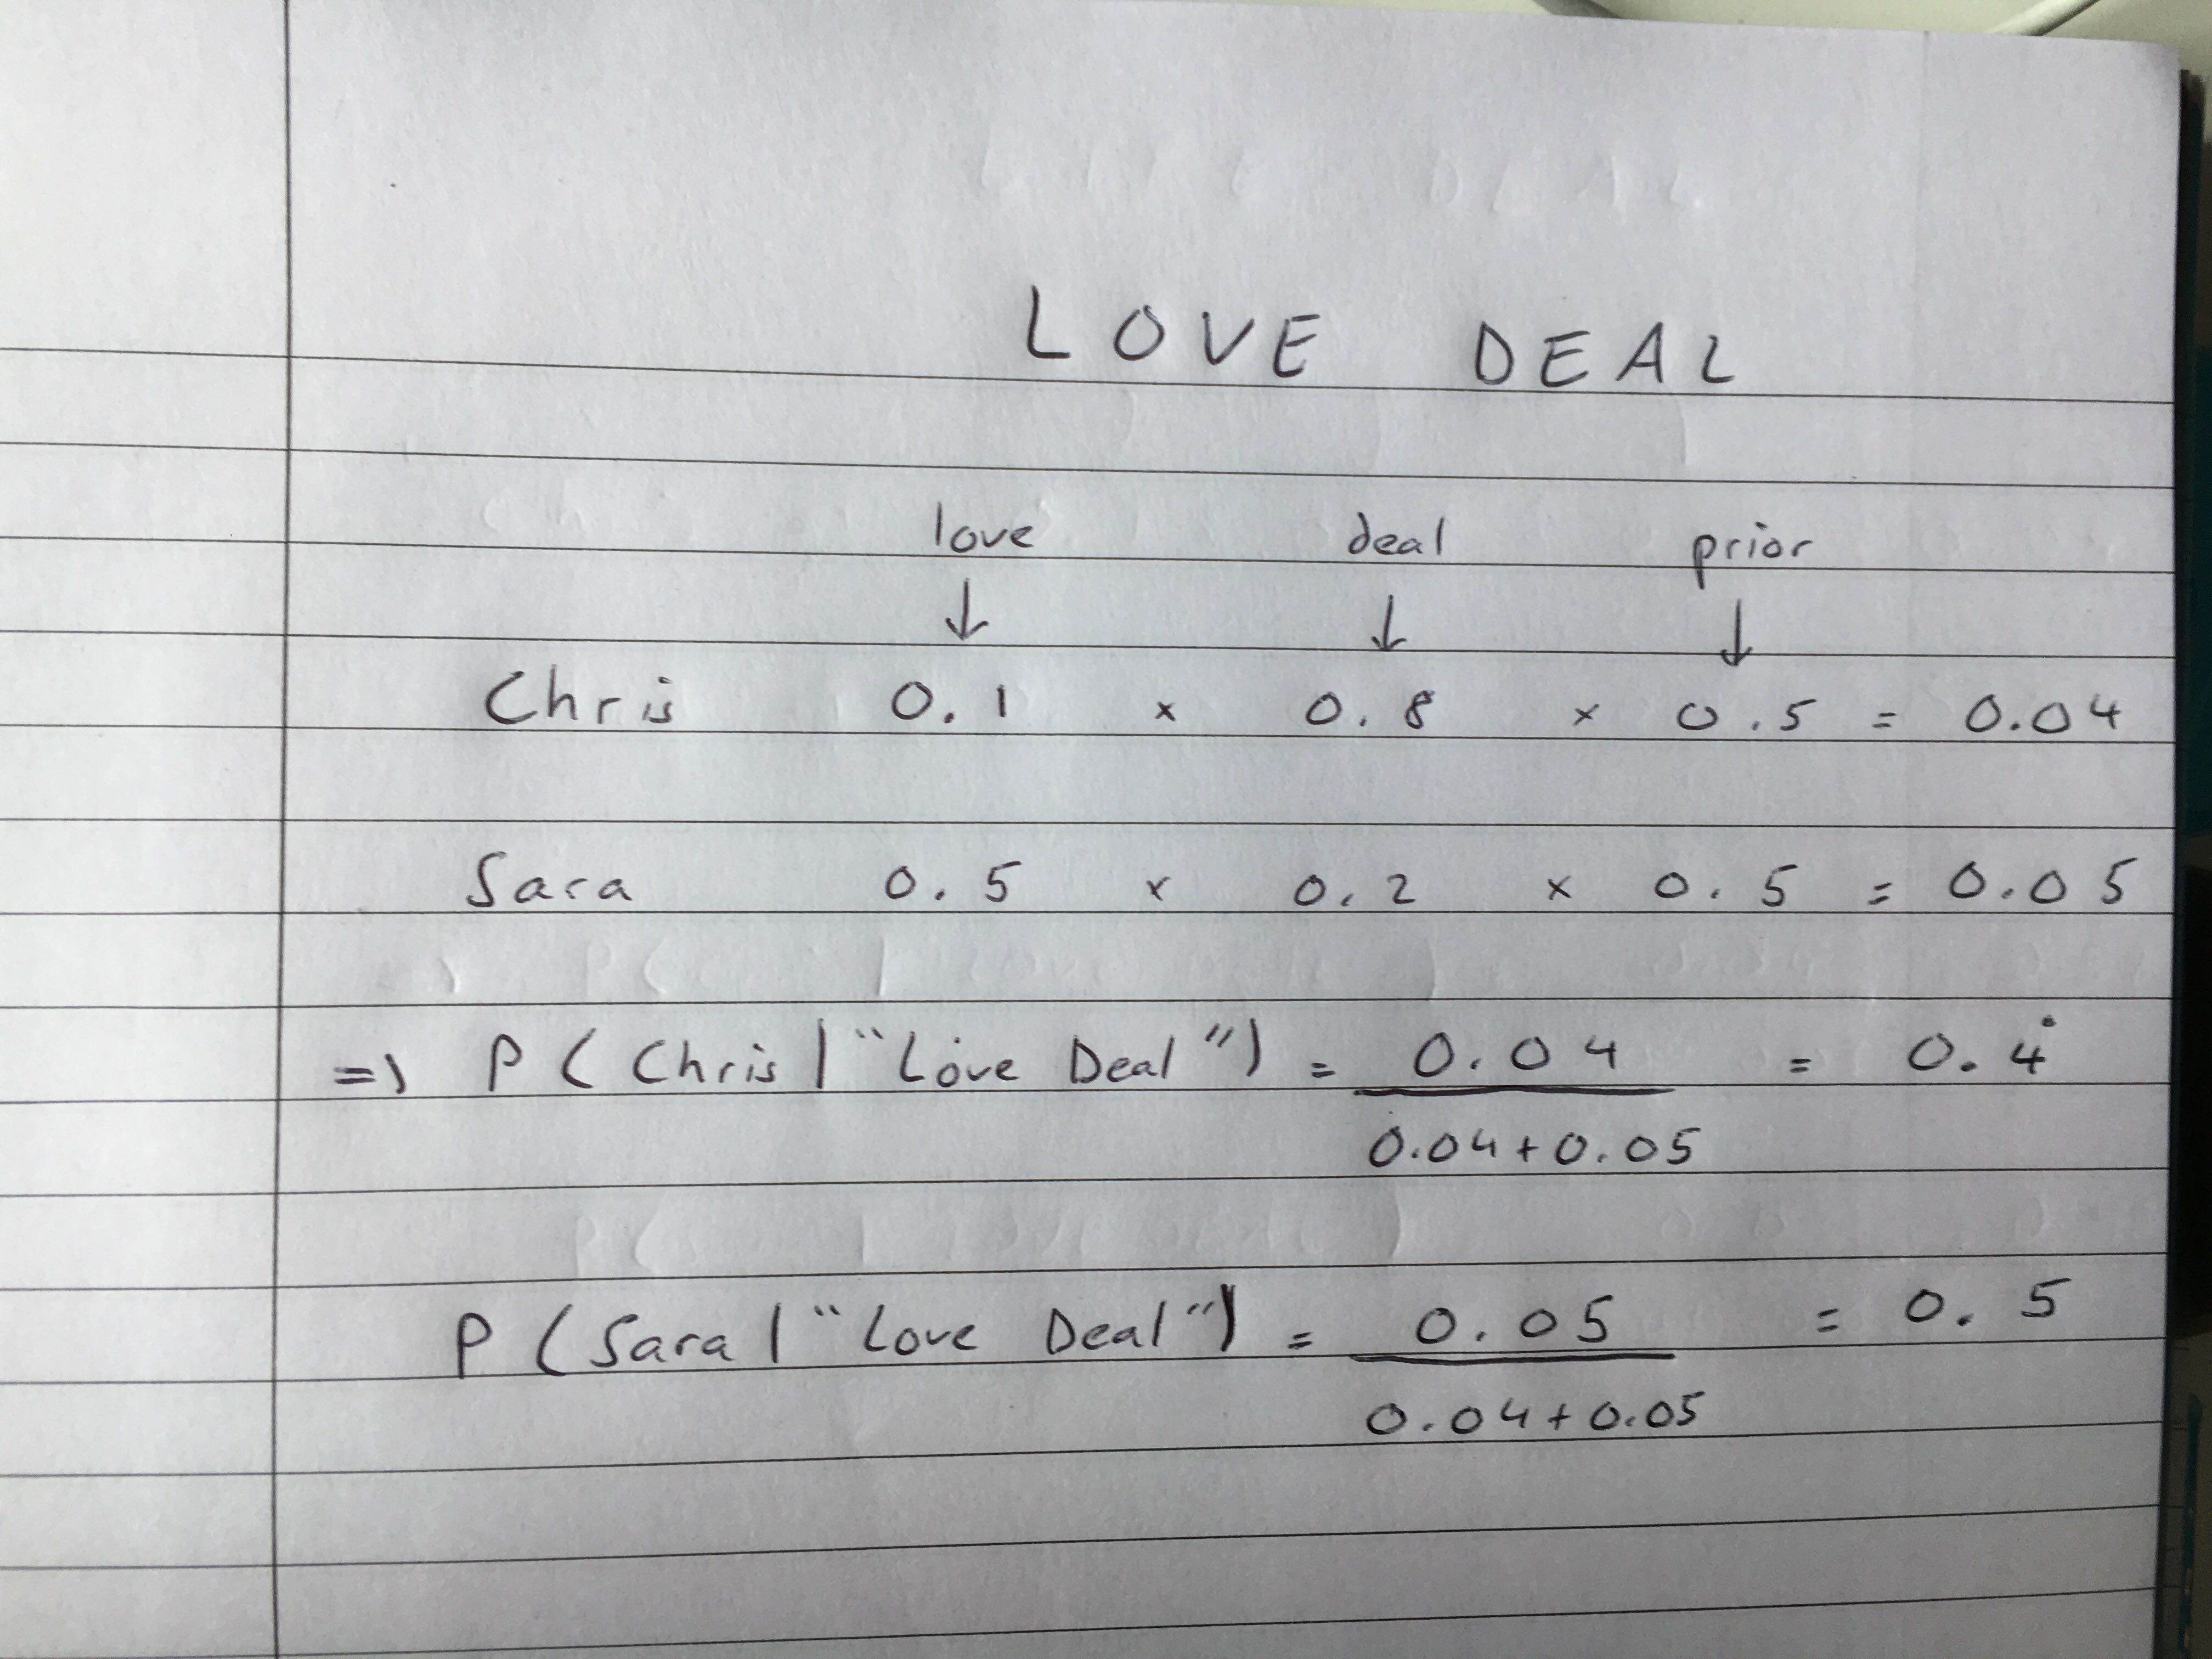 LOVE DEAL
love deal prior
↓ ↓ ↓
Chris 0.1 × 0.8 × 0.5 = 0.04
Sara 0.5 × 0.2 × 0.5 = 0.05
=) P(Chris | "Love Deal") = 0.04 = 0.4̇
0.04+0.05
P(Sara | "Love Deal") = 0.05 = 0.5
0.04+0.05